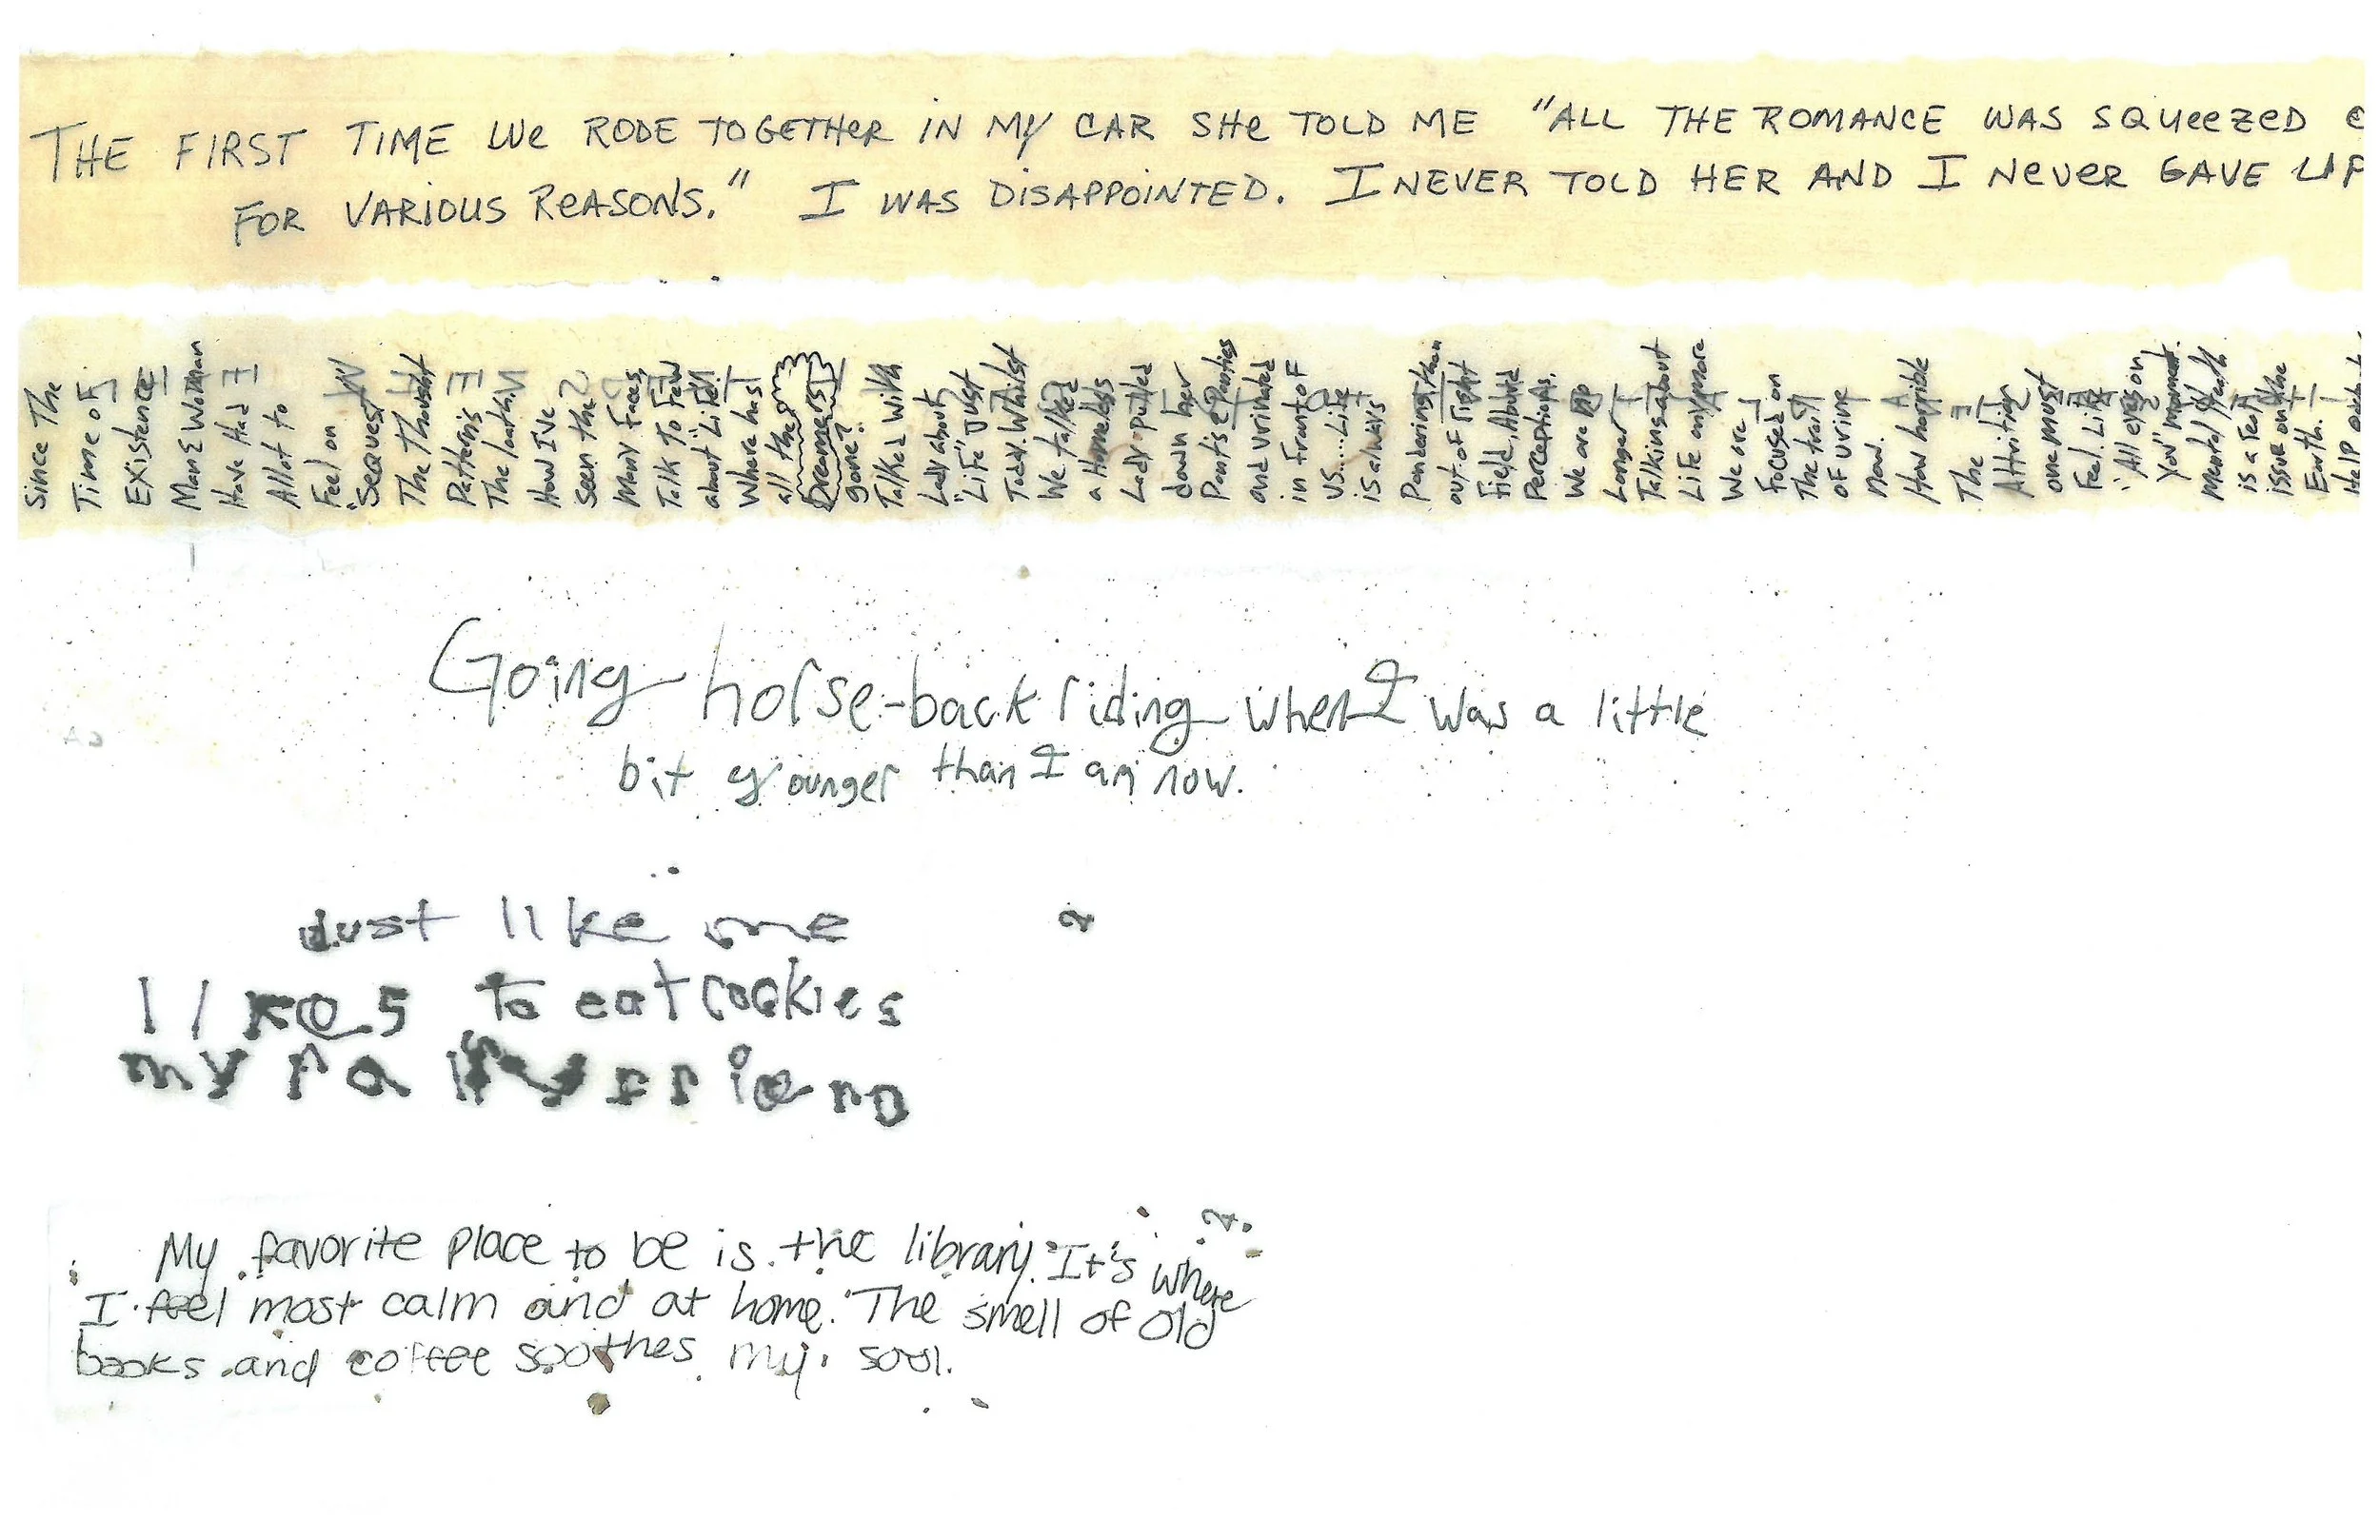 THE FIRST TIME We RODE TOGETHER IN MY CAR SHe TOLD ME "ALL THE ROMANCE WAS SQUeeZED
FOR VARIOUS ReASONS." I WAS DISAPPOINTED. I NEVER TOLD HER AND I NeveR GAVE UP
Since The
Time oF
Existence
Man & Woman
Have Had
Allot to
Feel on
"Sequest
The Thought
Patterns
The
How I've
Seen the
Many Faces,
Talk To Few
about "Life"
Where has
all the
Dreamers
gone?
Talked with
Lady about
"Life" Just
Today. Whilst
We talked
a Homeless
Lady pulled
down her
Pants & Panties
and Urinated
in Front oF
US.....Life
is always
Pondering then
out of Right
Field, Absurd
Perceptions.
We are no
Longer
Talking about
Life anymore
We are
Focused on
The trail
of urine
now.
How horrible
The
one must
Feel. Like
"All eyes on
You" moment.
Mental Health
is a real
issue on the
Earth.
Help
Going horse-back riding when I was a little
bit younger than I am now.
Just like me
likes to eat cookies
my
My favorite place to be is the library. It's where
I feel most calm and at home. The smell of old
books and coffee soothes my soul.